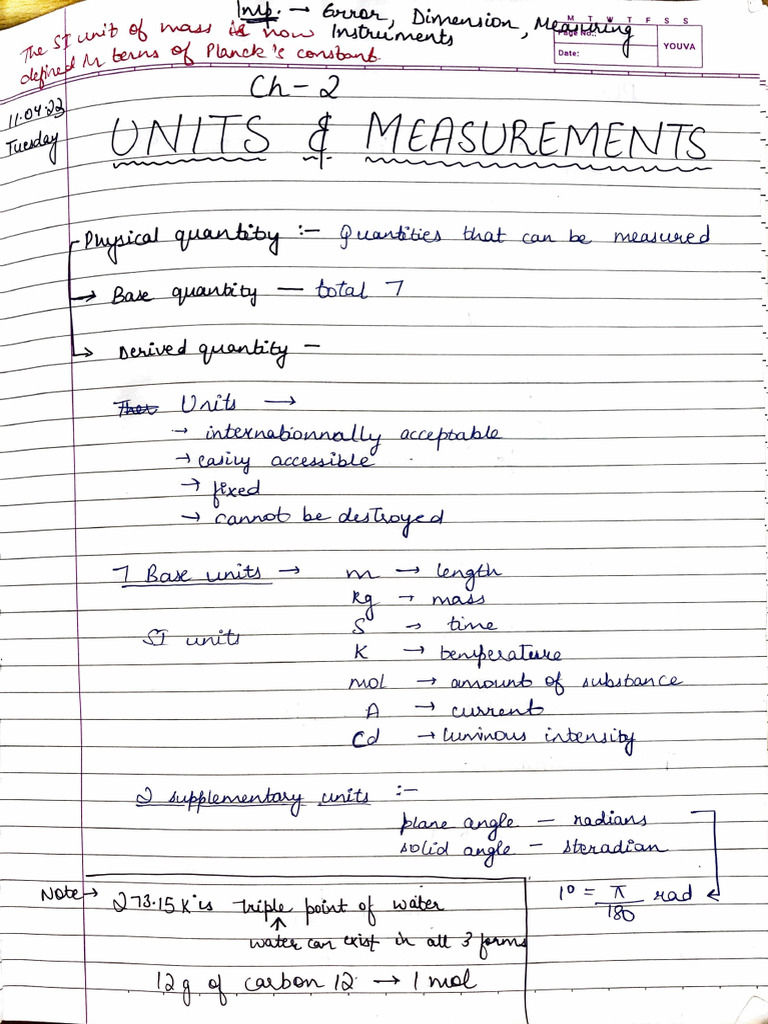 Imp. → Error, Dimension, Measuring Instruments
The SI unit of mass is now
defined in terms of Planck's constant.
M T W T F S S
Page No.:
Date:
YOUVA
11.04.23
Tuesday
Ch-2
UNITS & MEASUREMENTS
Physical quantity :- Quantities that can be measured
→ Base quantity — total 7
→ Derived quantity —
Units →
→ internationnally acceptable
→ easily accessible
→ fixed
→ cannot be destroyed
7 Base units → m → length
kg → mass
SI units
S → time
K → temperature
mol → amount of substance
A → current
Cd → luminous intensity
2 supplementary units :-
plane angle — radians
solid angle — steradian
1° = π/180 rad
Note → 273.15 K is triple point of water
↑
water can exist in all 3 forms
12g of carbon 12 → 1 mol